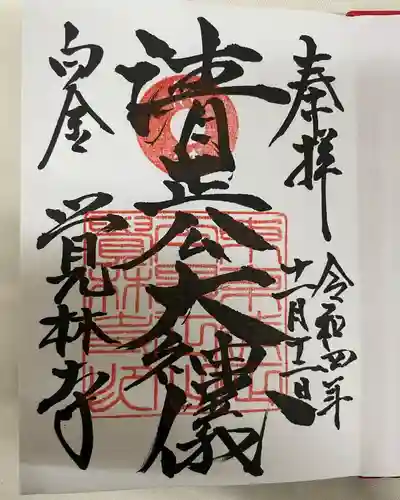 奉拝
令和四年
十一月
清正公大神儀
白金
覚林寺